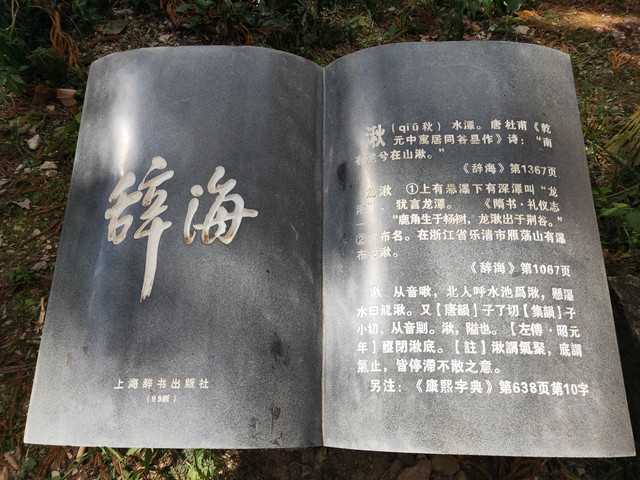 辞海
上海辞书出版社
(99版)
湫 (qiū秋) 水潭。唐杜甫《乾
元中寓居同谷县作》诗:“南
有龙兮在山湫。”
《辞海》第1367页
龙湫 ①上有悬瀑下有深潭叫“龙
湫” 犹言龙潭。 《隋书·礼仪志
一 “鹿角生于杨树,龙湫出于荆谷。”
②瀑布名。在浙江省乐清市雁荡山有瀑
布 湫。
《辞海》第1067页
湫 从音啾,北人呼水池爲湫,懸瀑
水曰龍湫。又【唐韻】子了切【集韻】子
小切,从音剿。湫,隘也。【左傳·昭元
年】壅閉湫底。【註】湫謂氣聚,底謂
氣止,皆停滯不散之意。
另注:《康熙字典》第638页第10字